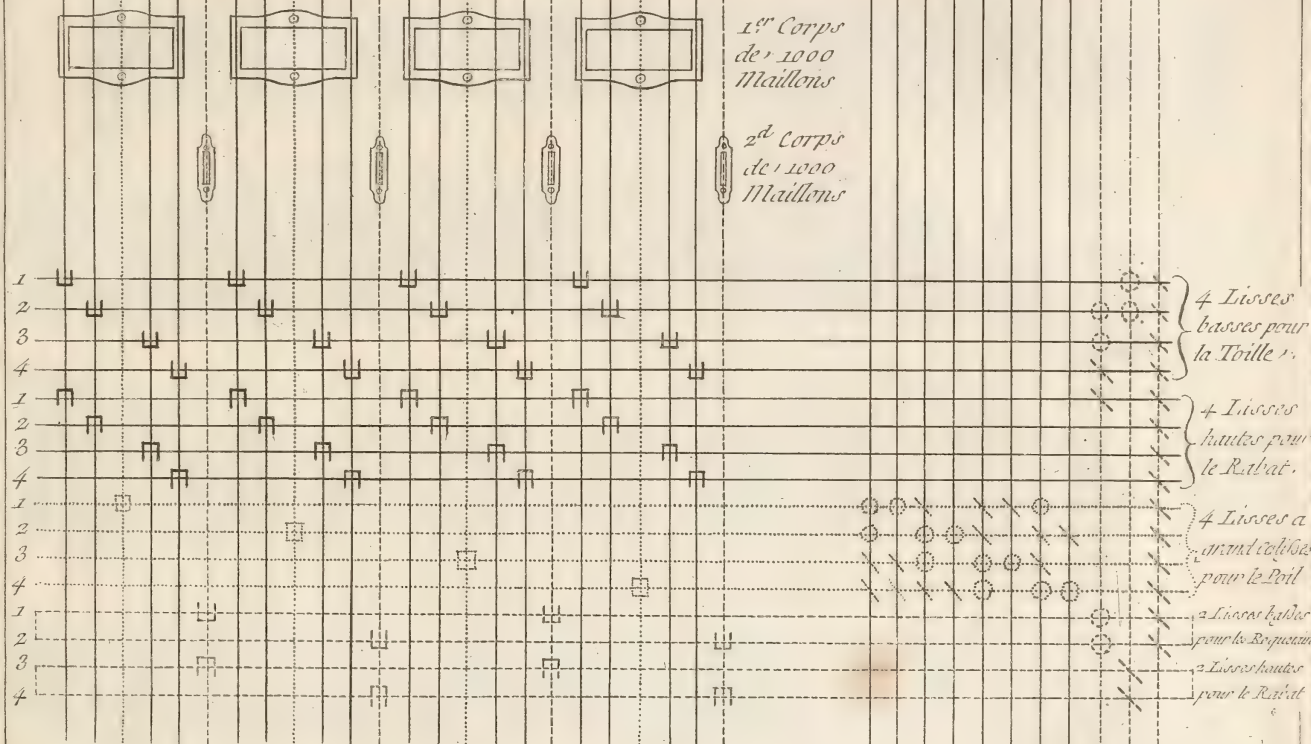 1.er Corps
de 1000
Maillons
2.d Corps
de 1000
Maillons
1
2
3
4
1
2
3
4
1
2
3
4
1
2
3
4
4 Lisses
basses pour
la Toille
4 Lisses
hautes pour
le Rabat.
4 Lisses a
grand Colisses
pour le Poil
2 Lisses basses
pour le Roquetin
2 Lisses hautes
pour le Rabat